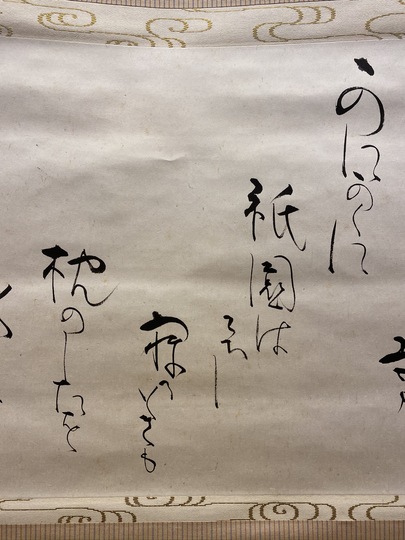 かにかくに
祇園は
こひし
寝るときも
枕のしたを